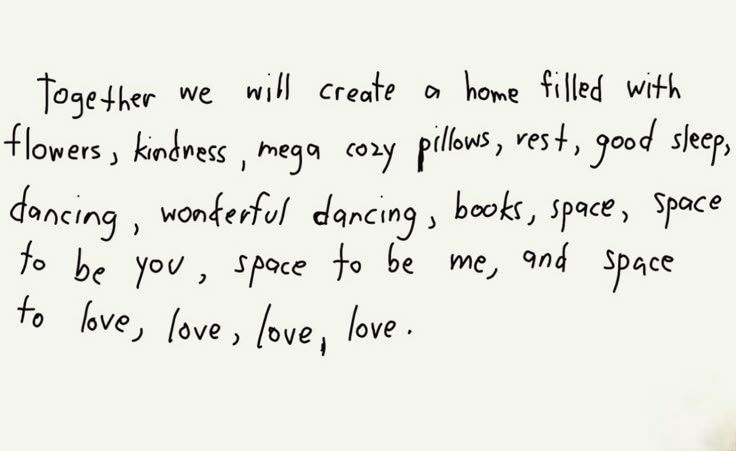 Together we will create a home filled with
flowers, kindness, mega cozy pillows, rest, good sleep,
dancing, wonderful dancing, books, space, space
to be you, space to be me, and space
to love, love, love, love.